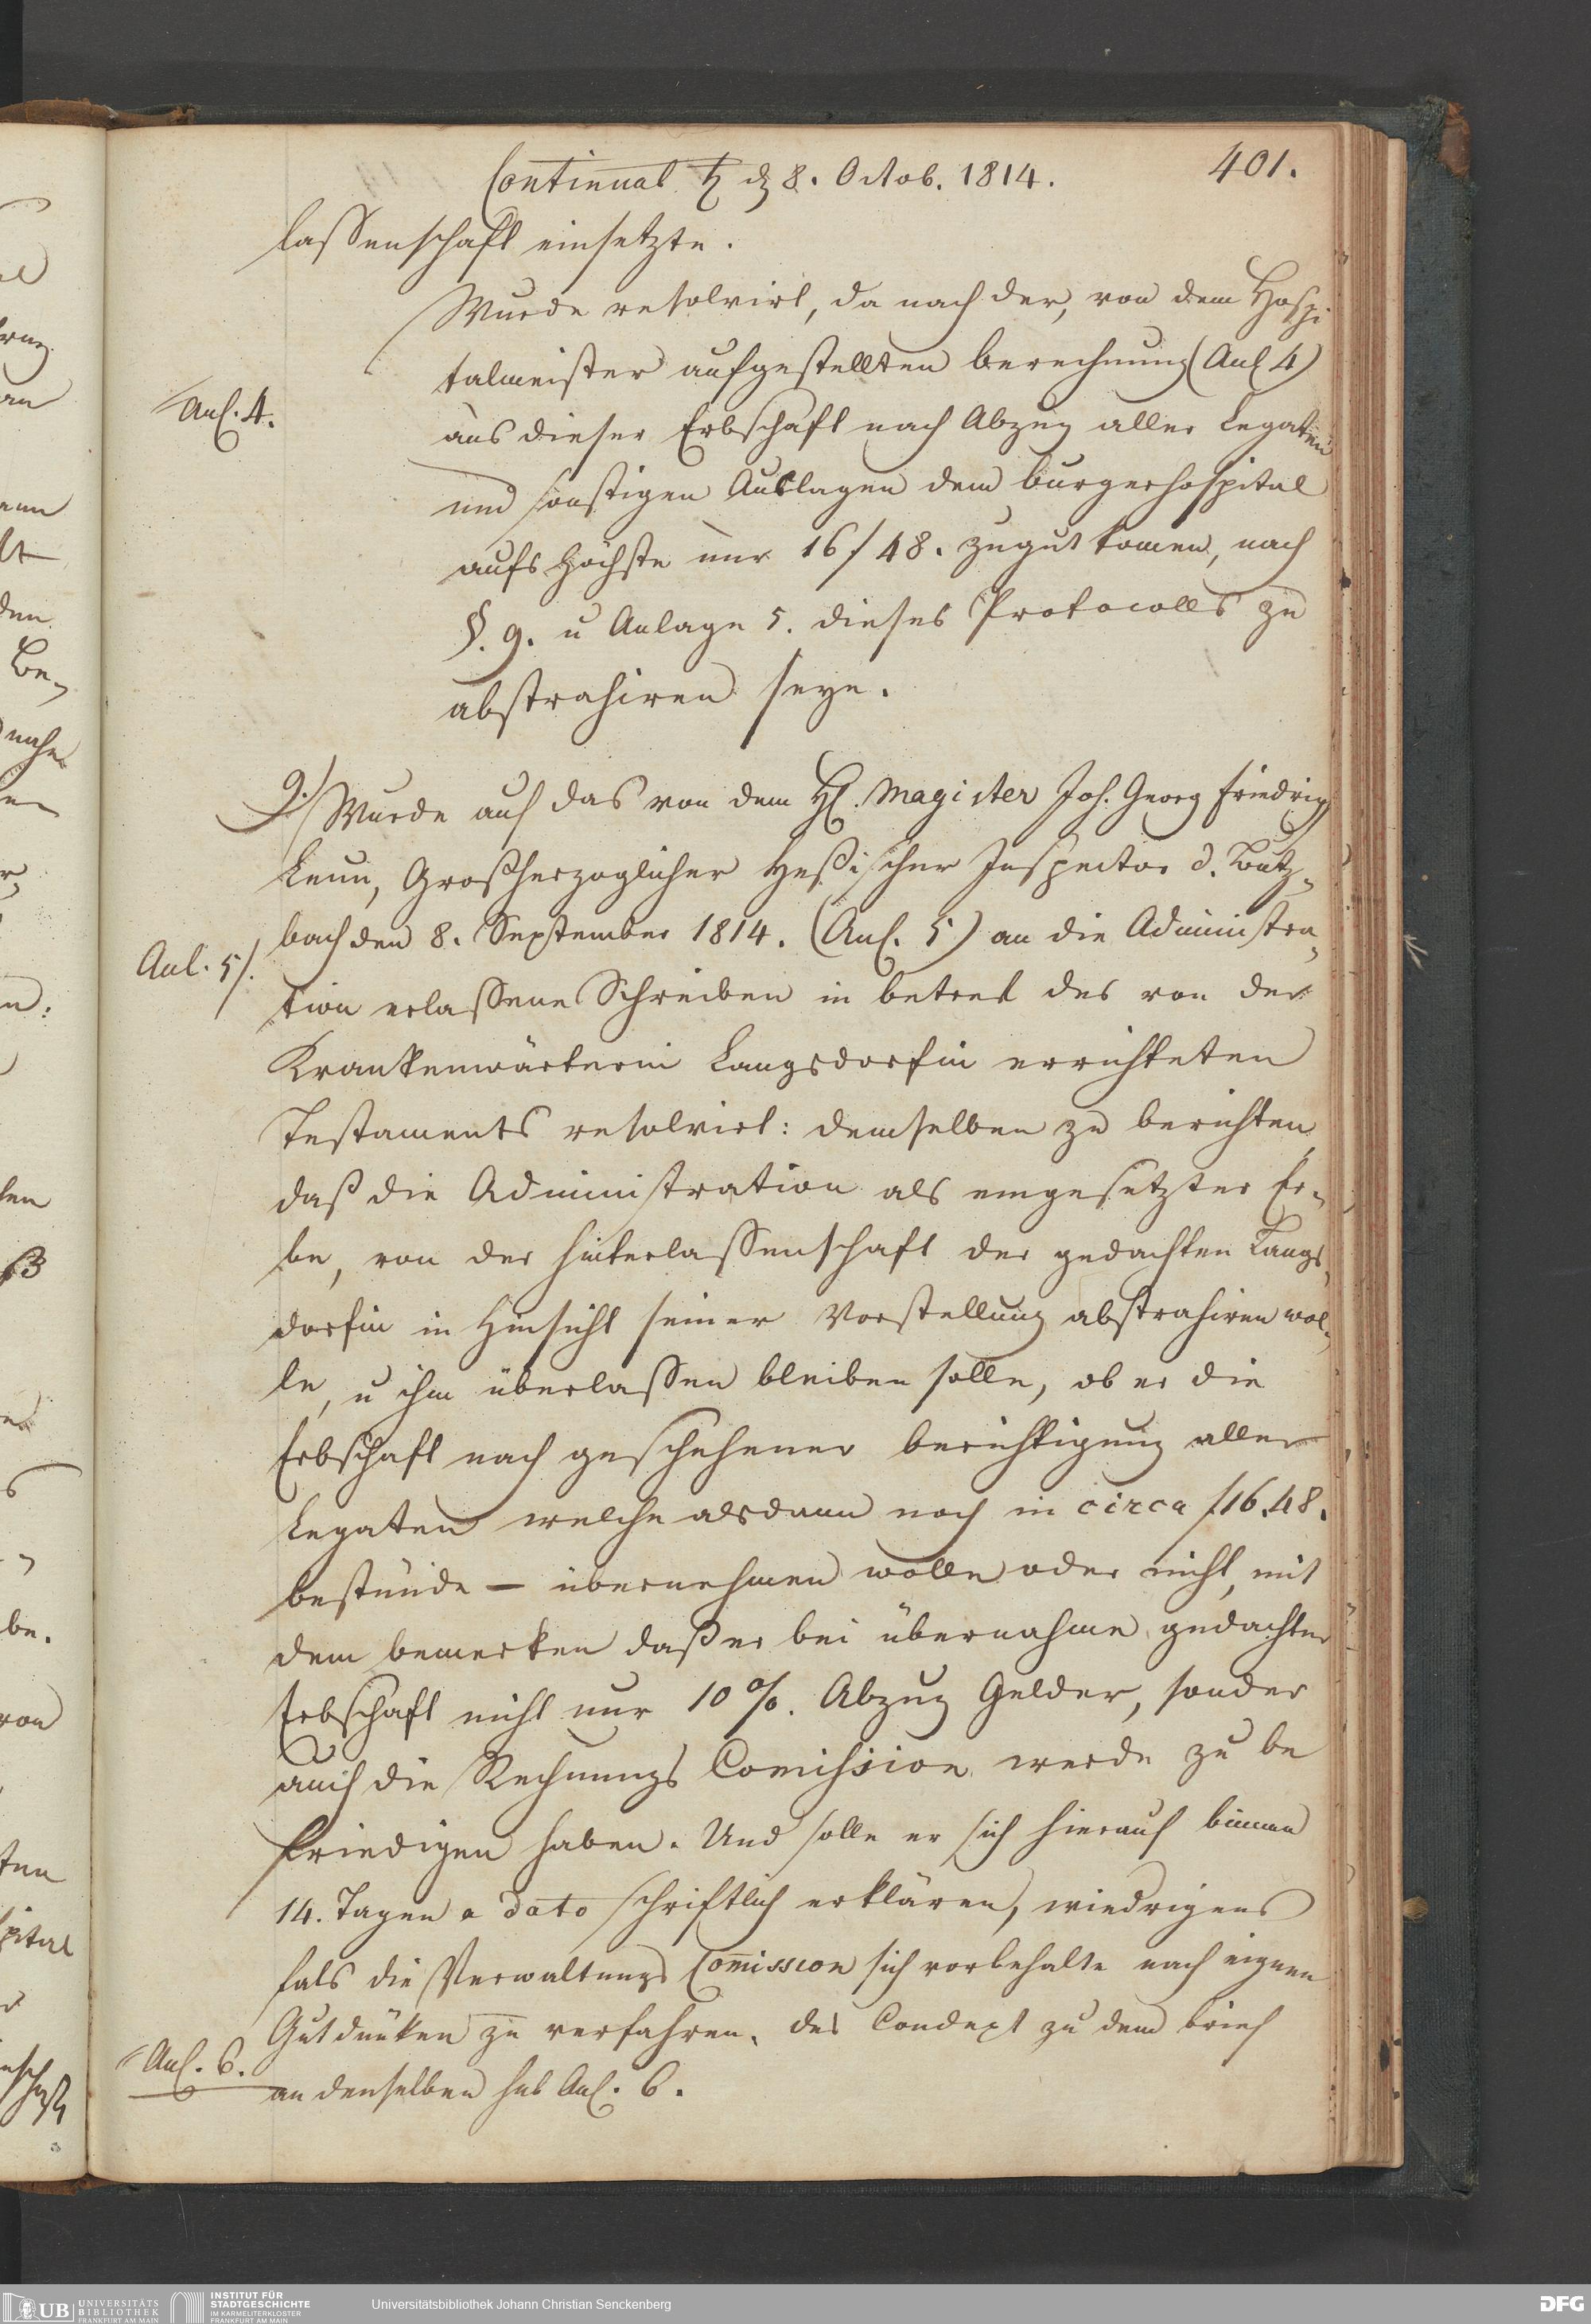 Continuat. ♄ d. 8. Octob. 1814.
401.
lassenschaft einsetzte.
Wurde resolvirt, da nach der, von dem Hospi
talmeister aufgestellten berechnung (Anl 4)
Anl. 4.
aus dieser Erbschaft nach Abzug aller Legaten
und sonstigen Auslagen dem burgerhospital
aufs höchste nur 16 f 48. zugut komen, nach
§. 9. u Anlage 5. dieses Protocolls zu
abstrahiren seye.
9.) Wurde auf das von dem H. Magister Joh. Georg Friedrich
Leun, Großherzoglicher Heßischer Inspector d. Butz-
bach den 8. September 1814. (Anl. 5) an die Administra-
Anl. 5).
tion erlassene Schreiben in betref des von der
Krankenwärterin Langsdorfin errichteten
Testaments resolvirt: demselben zu berichten,
daß die Administration als eingesetzter Er-
be, von der hinterlassenschaft der gedachten Langs-
dorfin in Hinsicht seiner Vorstellung abstrahiren wol-
le, u ihm überlassen bleiben solle, ob er die
Erbschaft nach geschehener berichtigung aller
Legaten welche alsdann noch in circa f 16.48.
bestünde — übernehmen wolle oder nicht, mit
dem bemerken daß er bei übernahme gedachter
Erbschaft nicht nur 10 %. Abzug Gelder, sonder
auch die Rechnungs Comission werde zu be
friedigen haben. Und solle er sich hierauf binnen
14. Tagen a dato schriftlich erklären, wiedrigens
fals die Verwaltungs Comission sich vorbehalte nach eignen
Gutdünken zu verfahren. des Condept zu dem brief
Anl. 6.
an denselben sub Anl. 6.
UB UNIVERSITÄTS
BIBLIOTHEK
FRANKFURT AM MAIN
INSTITUT FÜR
STADTGESCHICHTE
IM KARMELITERKLOSTER
FRANKFURT AM MAIN
Universitätsbibliothek Johann Christian Senckenberg
DFG